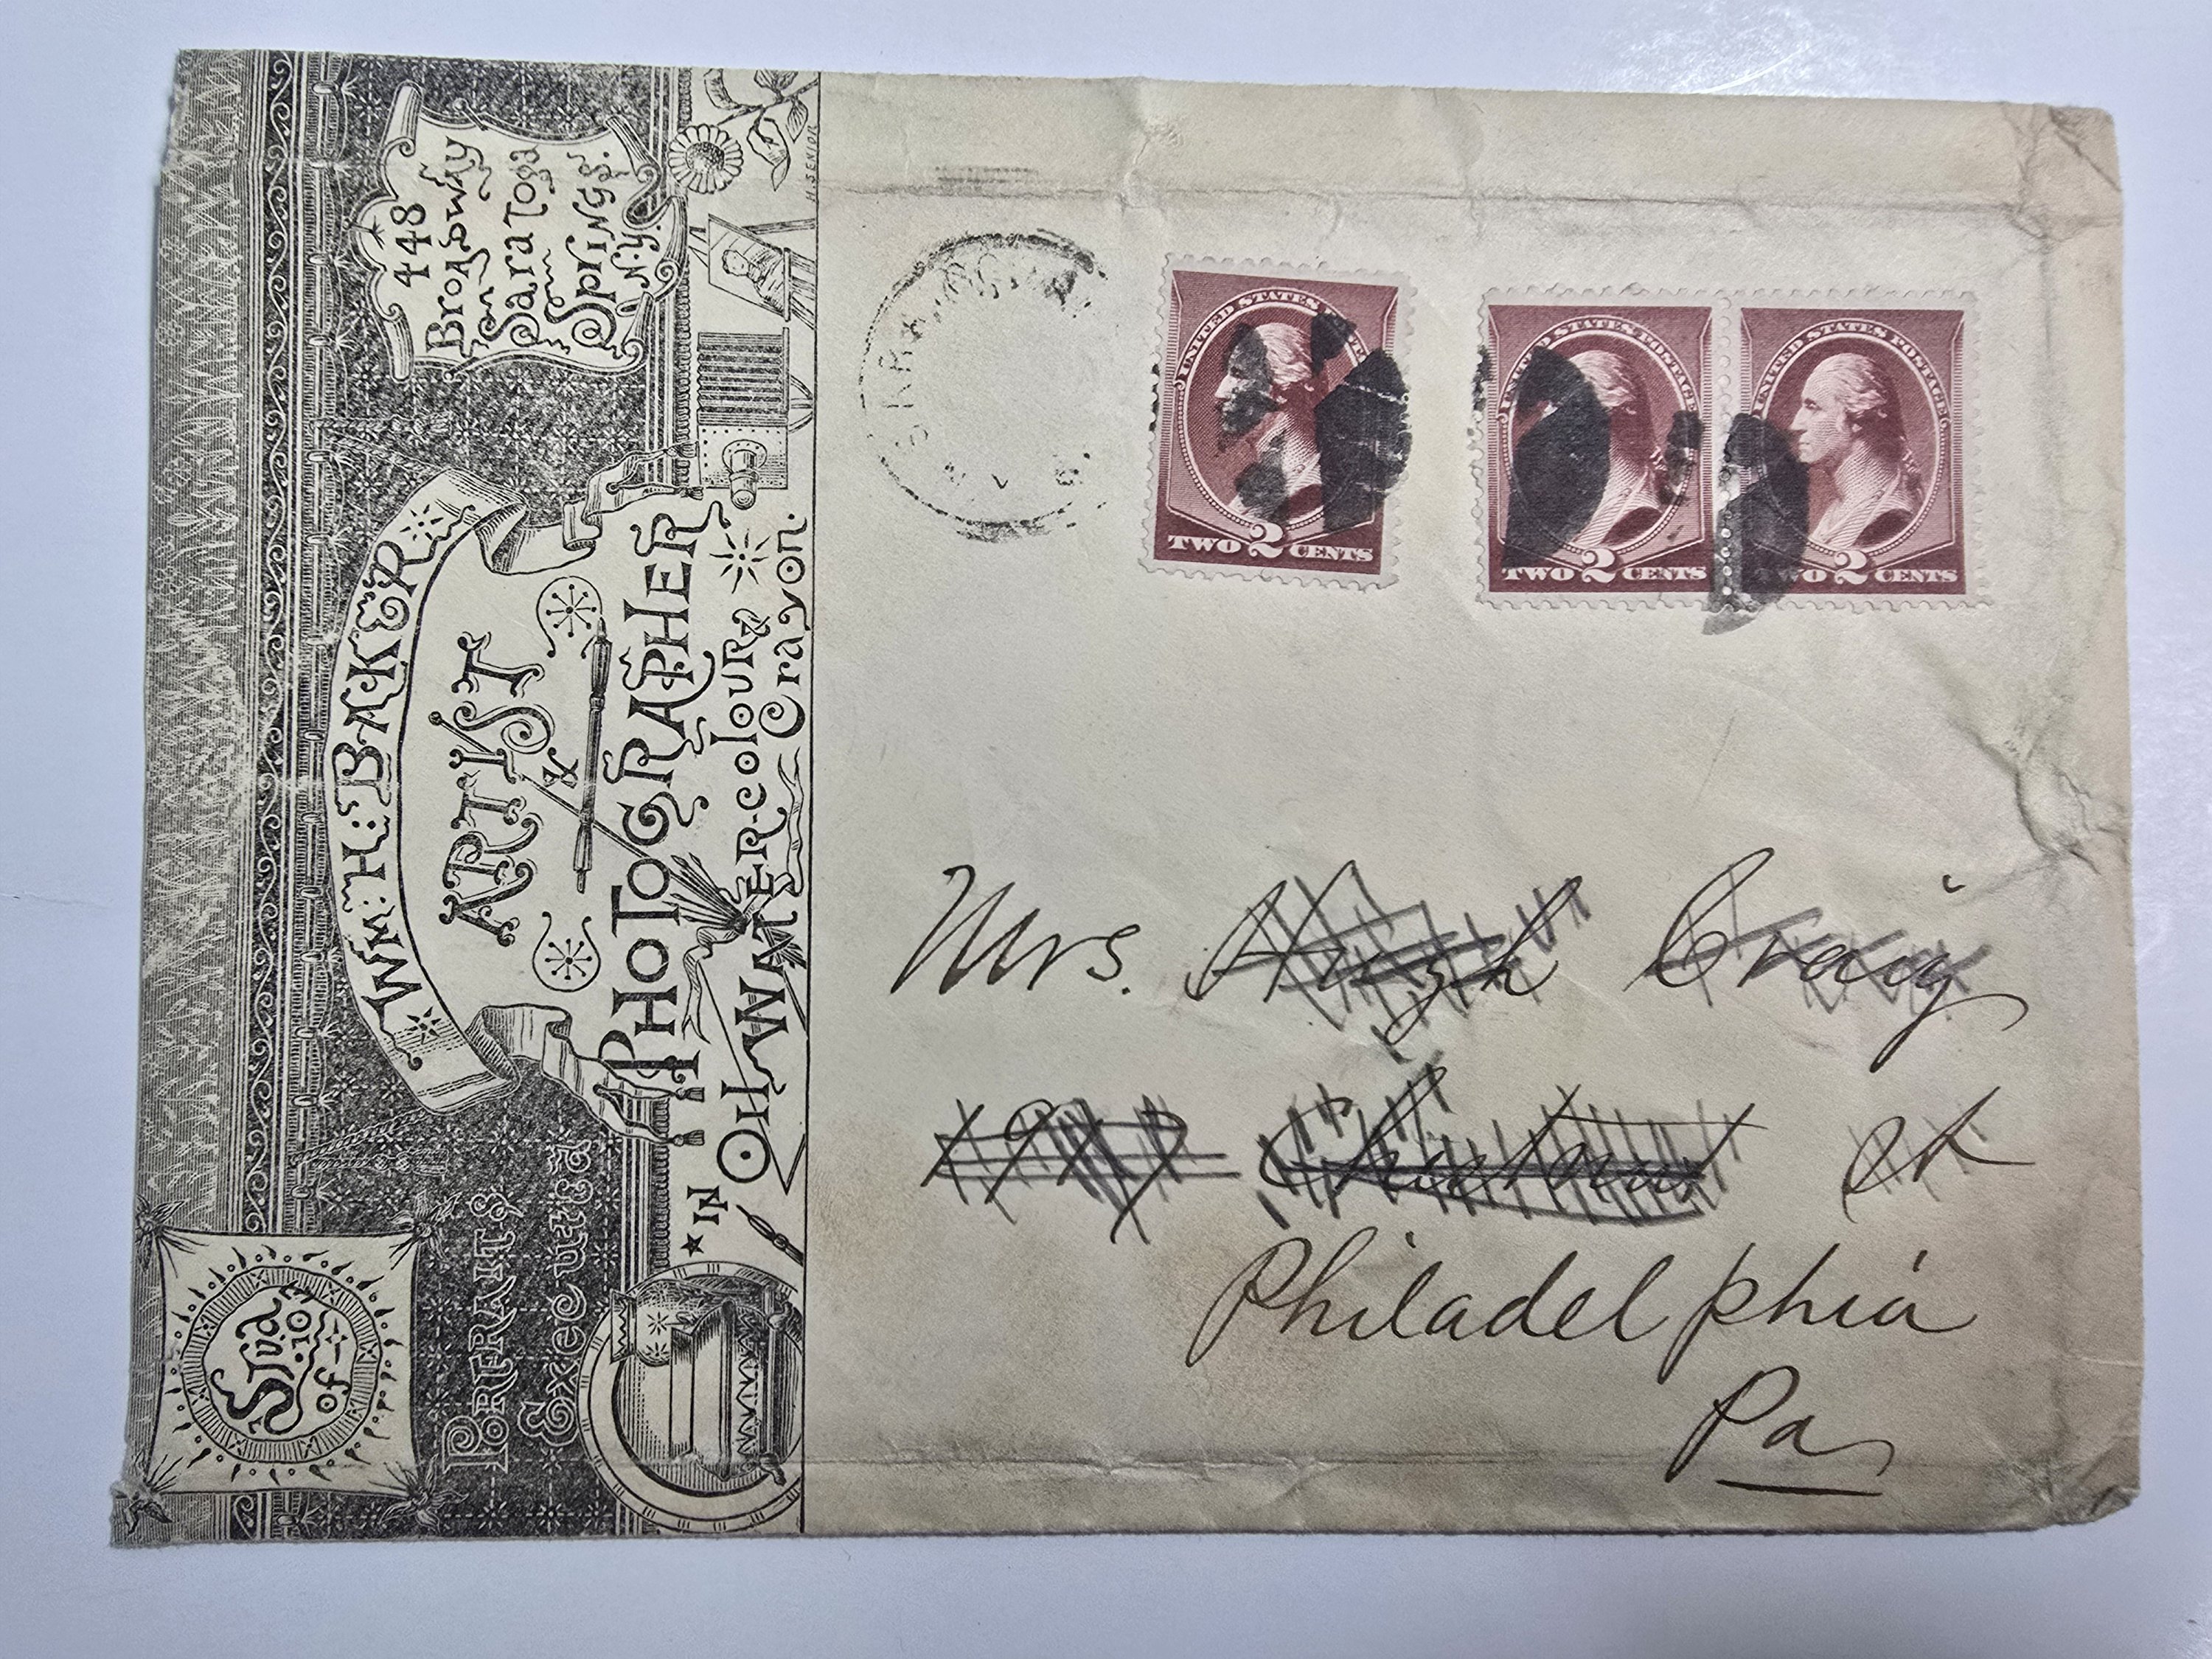 Studio
of
WM: H: BAKER
ARTIST
&
PHOTOGRAPHER
448
Broadway
Saratoga
Springs.
N.Y.
PORTRAITS
Executed
IN
OIL WATER-COLOUR &
Crayon.
H. SENIOR
UNITED STATES
TWO 2 CENTS
UNITED STATES POSTAGE
TWO 2 CENTS
UNITED STATES POSTAGE
TWO 2 CENTS
Mrs. Hugh Craig
Chestnut St
Philadelphia
Pa